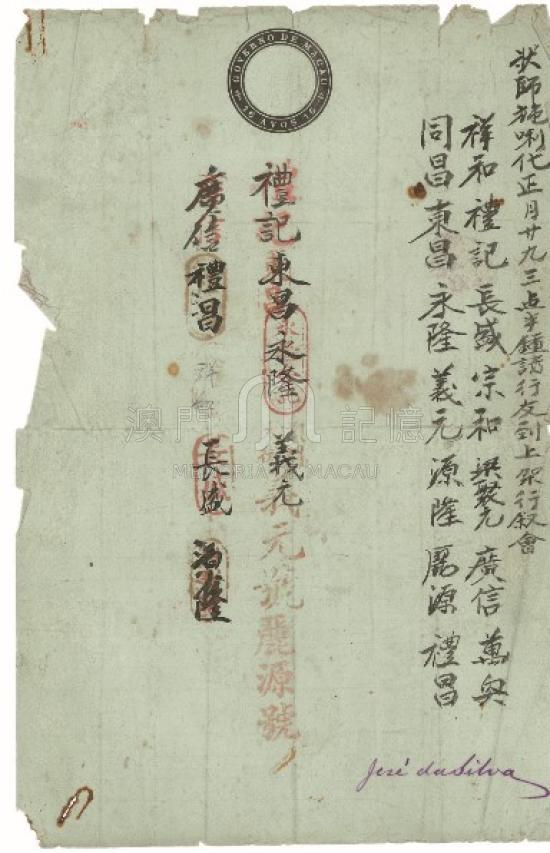 狀師施唎代正月廿九三点半鐘請行友到上架行叙會
祥和 禮記 長盛 宗和 梁聚元 廣信 萬興
同昌 東昌 永隆 義元 源隆 麗源 禮昌
禮記 東昌 永隆 義元
義元號 麗源號
廣信 禮昌 長盛 源隆
GOVERNO DE MACAU
澳門記憶
MEMÓRIA DE MACAU
José da Silva